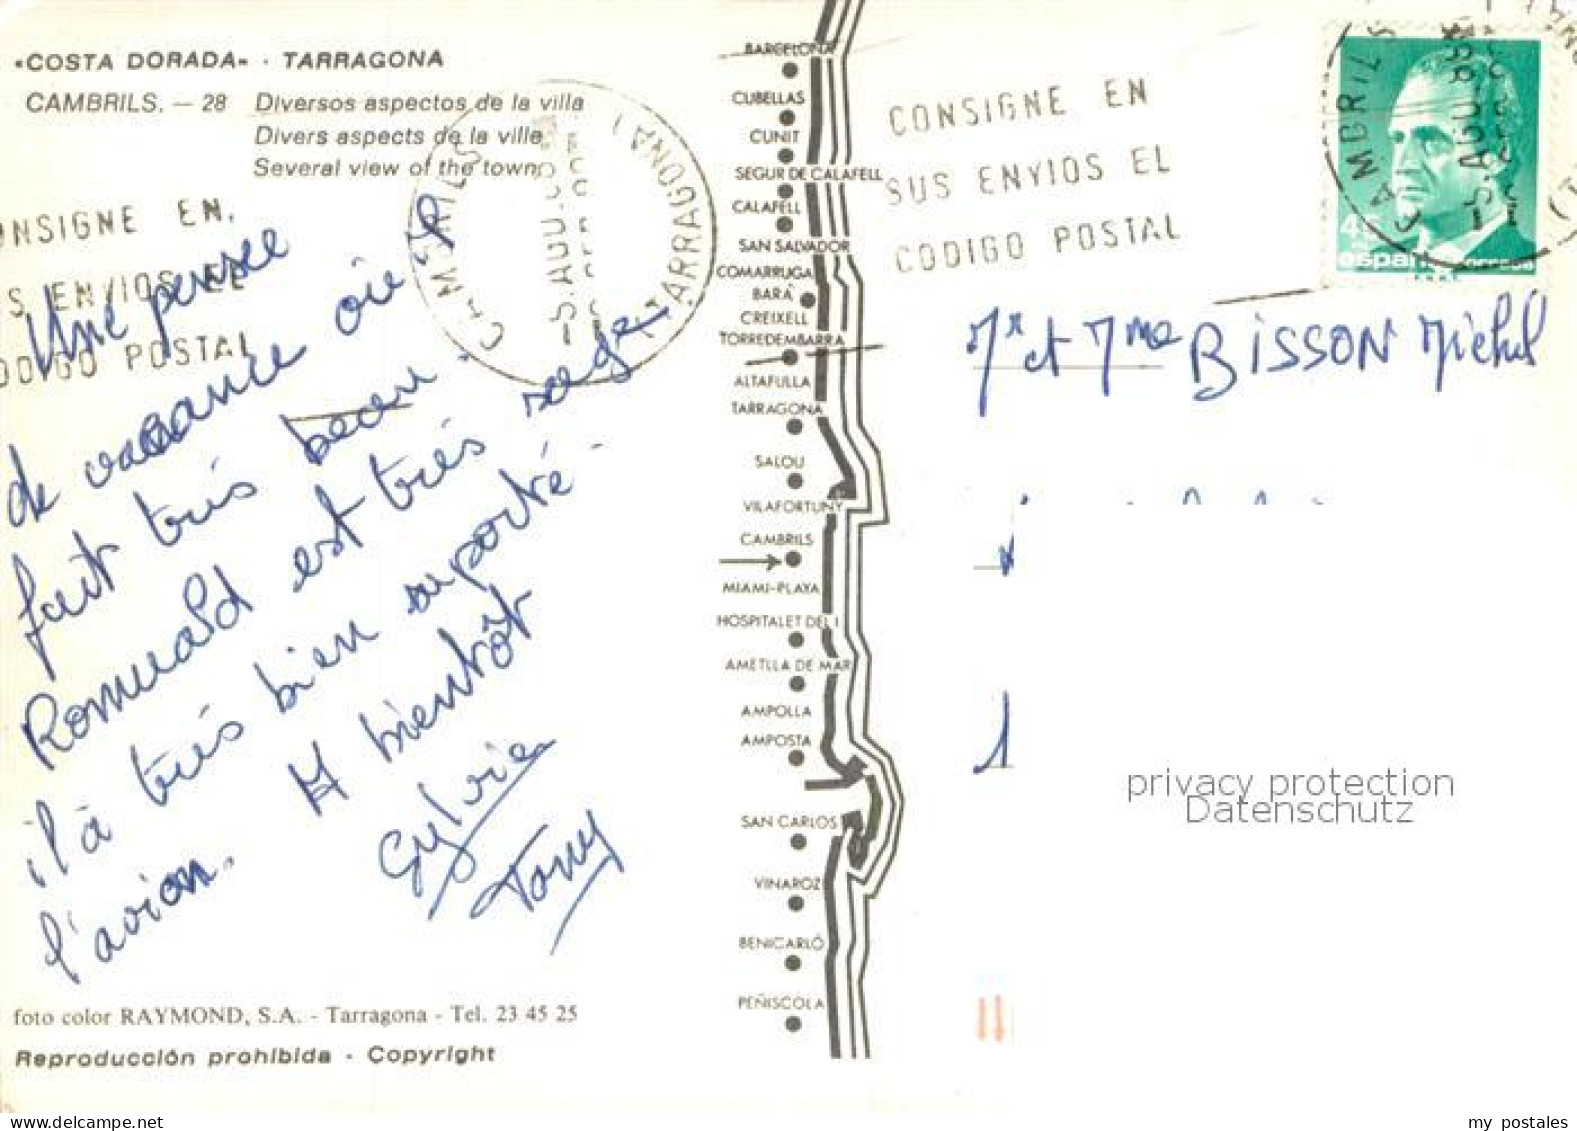 «COSTA DORADA» · TARRAGONA
CAMBRILS. — 28 Diversos aspectos de la villa
Divers aspects de la ville
Several view of the town
CONSIGNE EN
SUS ENVIOS EL
CODIGO POSTAL
NSIGNE EN.
S ENVIOS EL
ODIGO POSTAL
TARRAGONA
-5.AGO.
CAMBRILS
-5.AGO.
4
españa correos
Une pensée
de vacance où il
fait très beau.
Romuald est très sage
il à très bien suporté
l'avion. A bientôt
Sylvie
Tony
Mr et Mme BISSON Michel
1
BARCELONA
CUBELLAS
CUNIT
SEGUR DE CALAFELL
CALAFELL
SAN SALVADOR
COMARRUGA
BARÁ
CREIXELL
TORREDEMBARRA
ALTAFULLA
TARRAGONA
SALOU
VILAFORTUNY
CAMBRILS
MIAMI-PLAYA
HOSPITALET DEL I
AMETLLA DE MAR
AMPOLLA
AMPOSTA
SAN CARLOS
VINAROZ
BENICARLÓ
PEÑISCOLA
privacy protection
Datenschutz
foto color RAYMOND, S.A. - Tarragona - Tel. 23 45 25
Reproducción prohibida - Copyright
www.delcampe.net
my postales